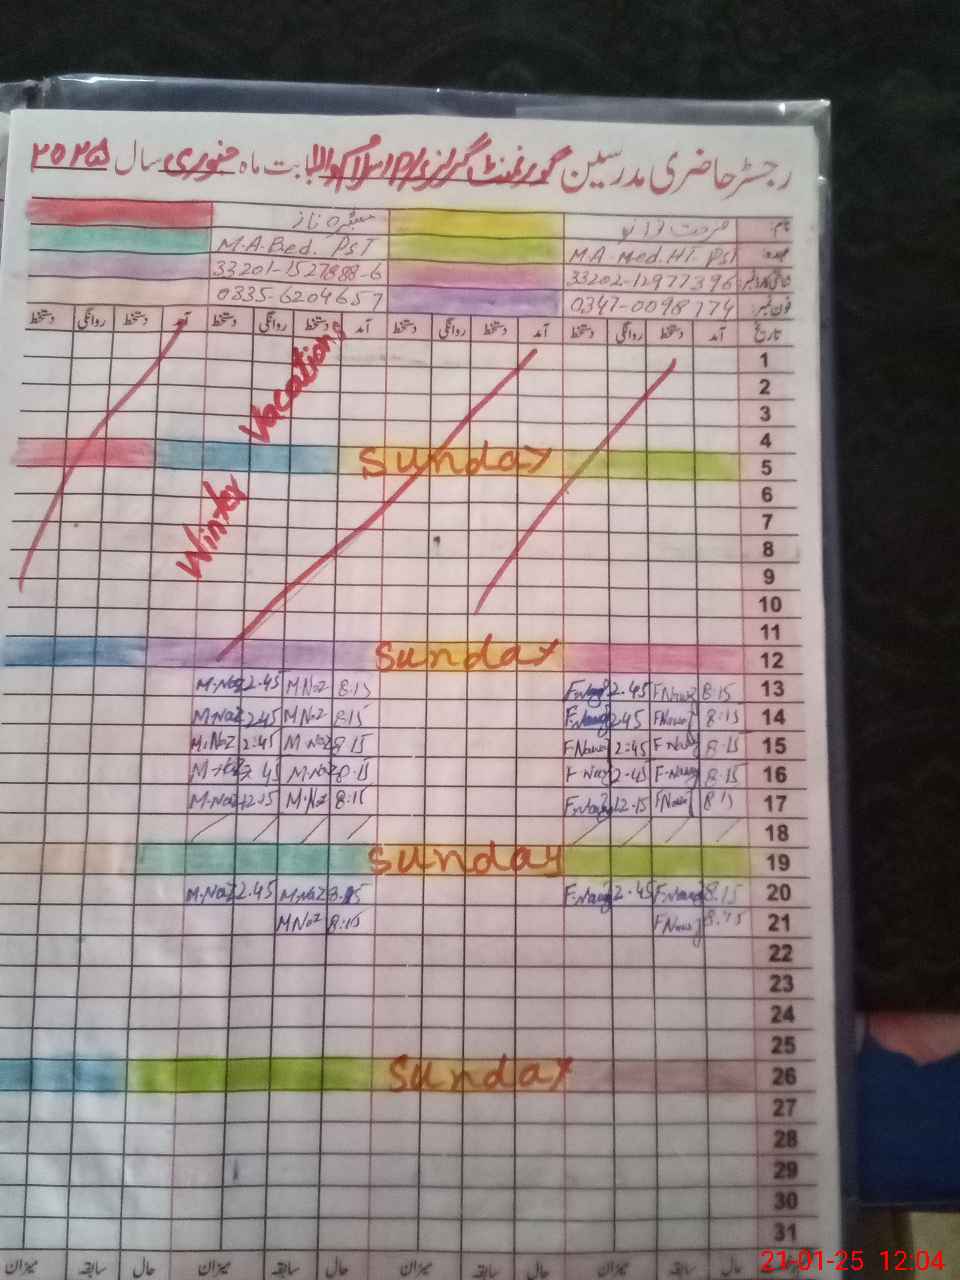 رجسٹر حاضری مدرسین گورنمنٹ گرلز بابت ماہ جنوری سال ۲۰۲۵
نام:
M.A-Bed. PST M.A-Med. HT. PST عہدہ:
33201-1527888-6 33202-1297739
0335-6204657 0347-0098774 فون نمبر:
تاریخ آمد دستخط روانگی دستخط آمد دستخط روانگی دستخط آمد دستخط روانگی دستخط آمد دستخط روانگی دستخط
1
2
3
4
Sunday 5
6
7
8
9
10
11
Sunday 12
Winter Vacations
M.Naz 2.45 M Naz 8.15 F.Nawaz 2.45 F Nawaz 8.15 13
M.Naz 2.45 M Naz 8.15 F.Nawaz 2.45 F Nawaz 8.15 14
M.Naz 2:45 M.Naz 8.15 F Nawaz 2:45 F Nawaz 8.15 15
M.Naz 2.45 M.Naz 8.15 F Nawaz 2.45 F.Nawaz 8.15 16
M.Naz 12.15 M.Naz 8:15 F.Nawaz 12.15 F Nawaz 8.15 17
18
Sunday 19
M.Naz 2.45 M.Naz 8.15 F.Nawaz 2.45 F.Nawaz 8.15 20
M Naz 8:15 F Nawaz 8.15 21
22
23
24
25
Sunday 26
27
28
29
30
31
حال سابقہ میزان حال سابقہ میزان حال سابقہ میزان حال سابقہ میزان
21-01-25 12:04